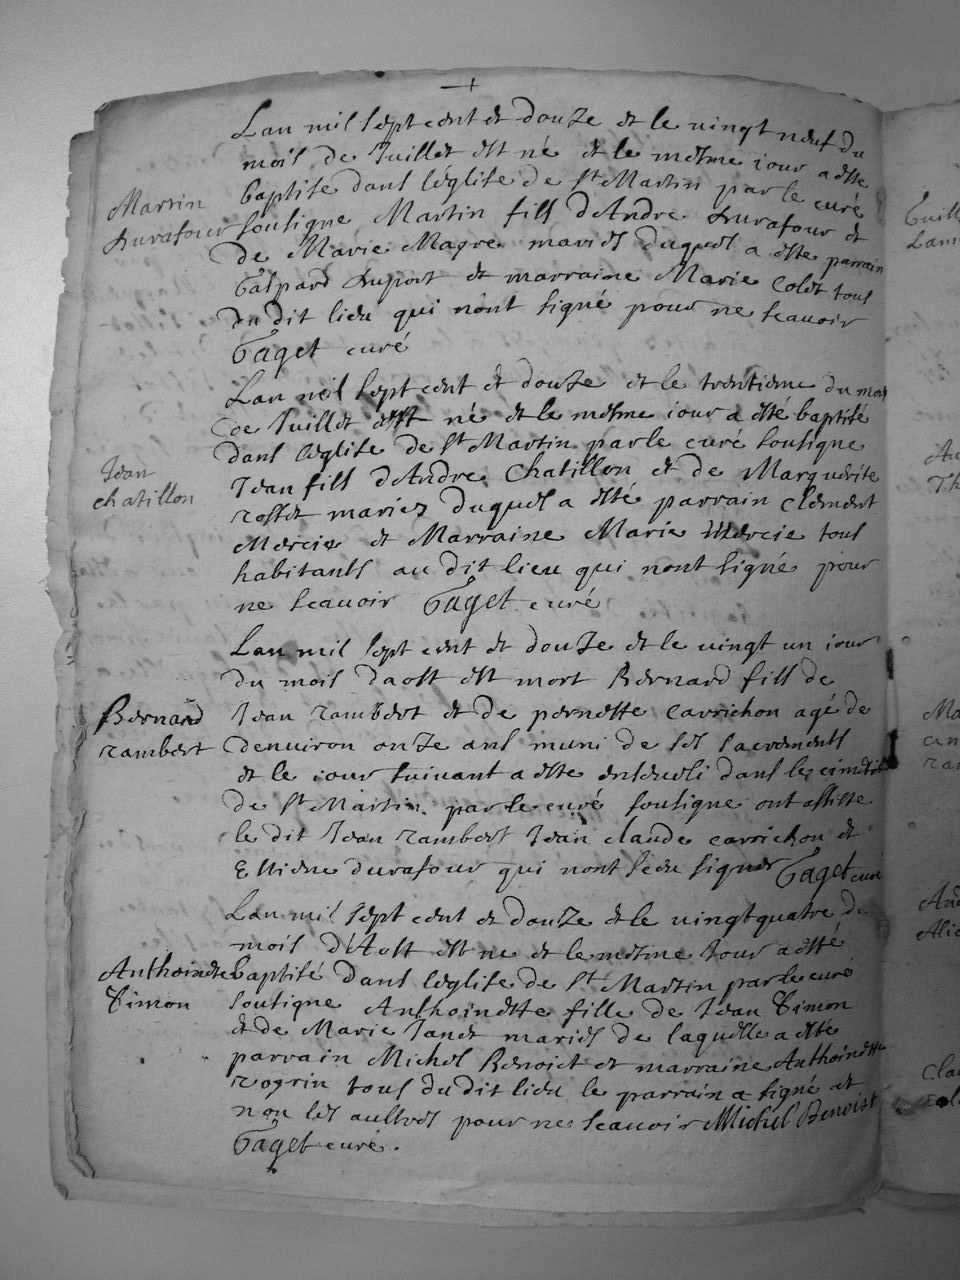 Lan mil sept cent et douze et le vingt neuf du
mois de Juillet est né et le mesme jour a este
baptise dans léglise de St Martin par le curé
Martin
Durafour
sousigne Martin fils dAndre Durafour et
de Marie Magre mariés duquel a este parrain
Gaspard Dupont et marraine Marie Colet tous
du dit lieu qui nont signé pour ne scauoir
Gaget curé
Lan mil sept cent et douze et le trentieme du mois
de Juillet est né et le mesme iour a esté baptisé
dans léglise de St Martin par le curé sousigne
Jean
chatillon
Jean fils dAndre Chatillon et de Marguerite
rostet mariez duquel a esté parrain Clement
Mercie et Marraine Marie Mercie tous
habitants au dit lieu qui nont signé pour
ne scauoir Gaget curé
Lan mil sept cent et douze et le vingt un iour
du mois daost est mort Bernard fils de
Bernard
rambert
Jean rambert et de pernette carrichon agé de
denuiron onze ans muni de ses sacrements
et le iour suiuant a este enseueli dans le cimetie
de St Martin par le curé sousigne ont assiste
le dit Jean rambert Jean claude carrichon et
Ettiene durafour qui nont sceu signer Gaget curé
Lan mil sept cent et douze et le uingt quatre de
mois dAost est ne et le mesme Jour a esté
Anthoinette
Simon
baptisé dans léglise de St Martin par le curé
sousigne Anthoinette fille de Jean Simon
et de Marie Janet mariés de laquelle a esté
parrain Michel Benoist et marraine Anthoinette
rogrin tous du dit lieu le parrain a signé et
non les aultres pour ne scauoir Michel Benoist
Gaget curé.